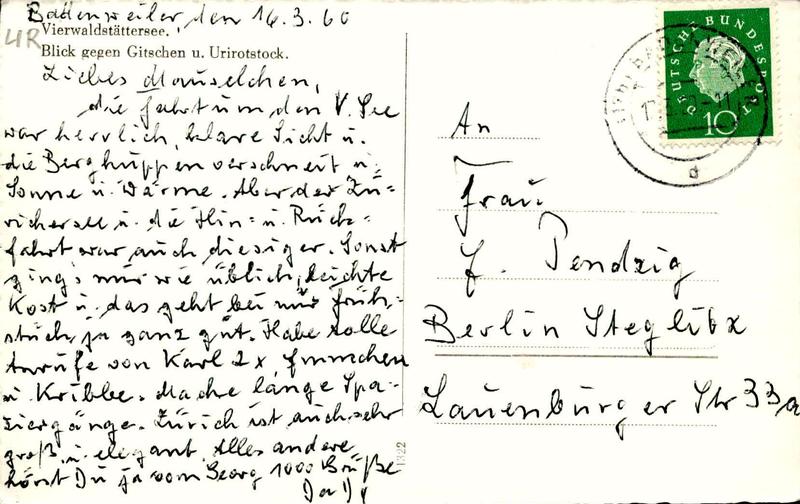 Badenweiler, den 16.3.60
4R
Vierwaldstättersee.
Blick gegen Gitschen u. Urirotstock.
Liebes Mauselchen,
die Fahrt um den V. See
war herrlich, klare Sicht u.
die Bergkuppen verschneit u.
Sonne u. Wärme. Aber der Zü-
richersee u. die Hin- u. Rück-
fahrt war auch diesiger. Sonst
ging's mir wie üblich, leichte
Kost u. das geht bei mir Früh-
stück ja ganz gut. Habe tolle
Anrufe von Karl 2x, Emmchen
u. Kribbe. Mache lange Spa-
ziergänge. Zürich ist auch sehr
groß u. elegant. Alles andere
hörst Du ja vom Georg 1000 Grüße
Dady
1322
DEUTSCHE BUNDESPOST
10
d
An
Frau
F. Pendzig
Berlin Steglitz
Lauenburger Str 33a